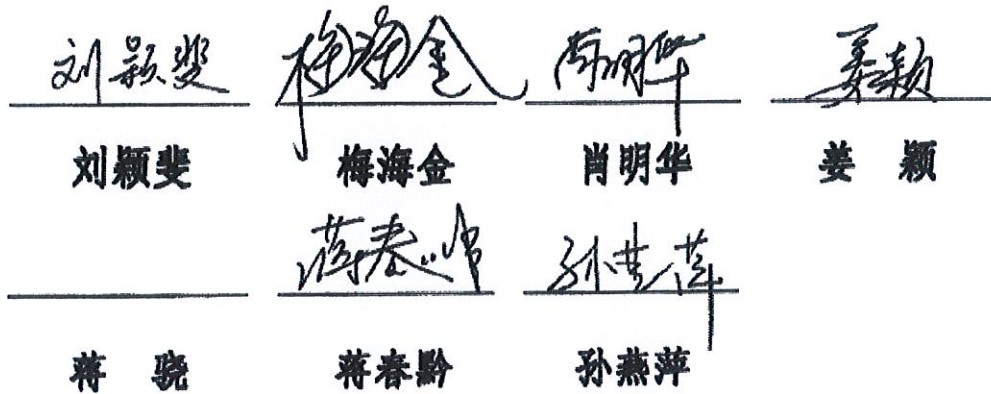 刘颖斐 梅海金 肖明华 姜颖
刘颖斐 梅海金 肖明华 姜 颖
蒋春黔 孙燕萍
蒋 骁 蒋春黔 孙燕萍